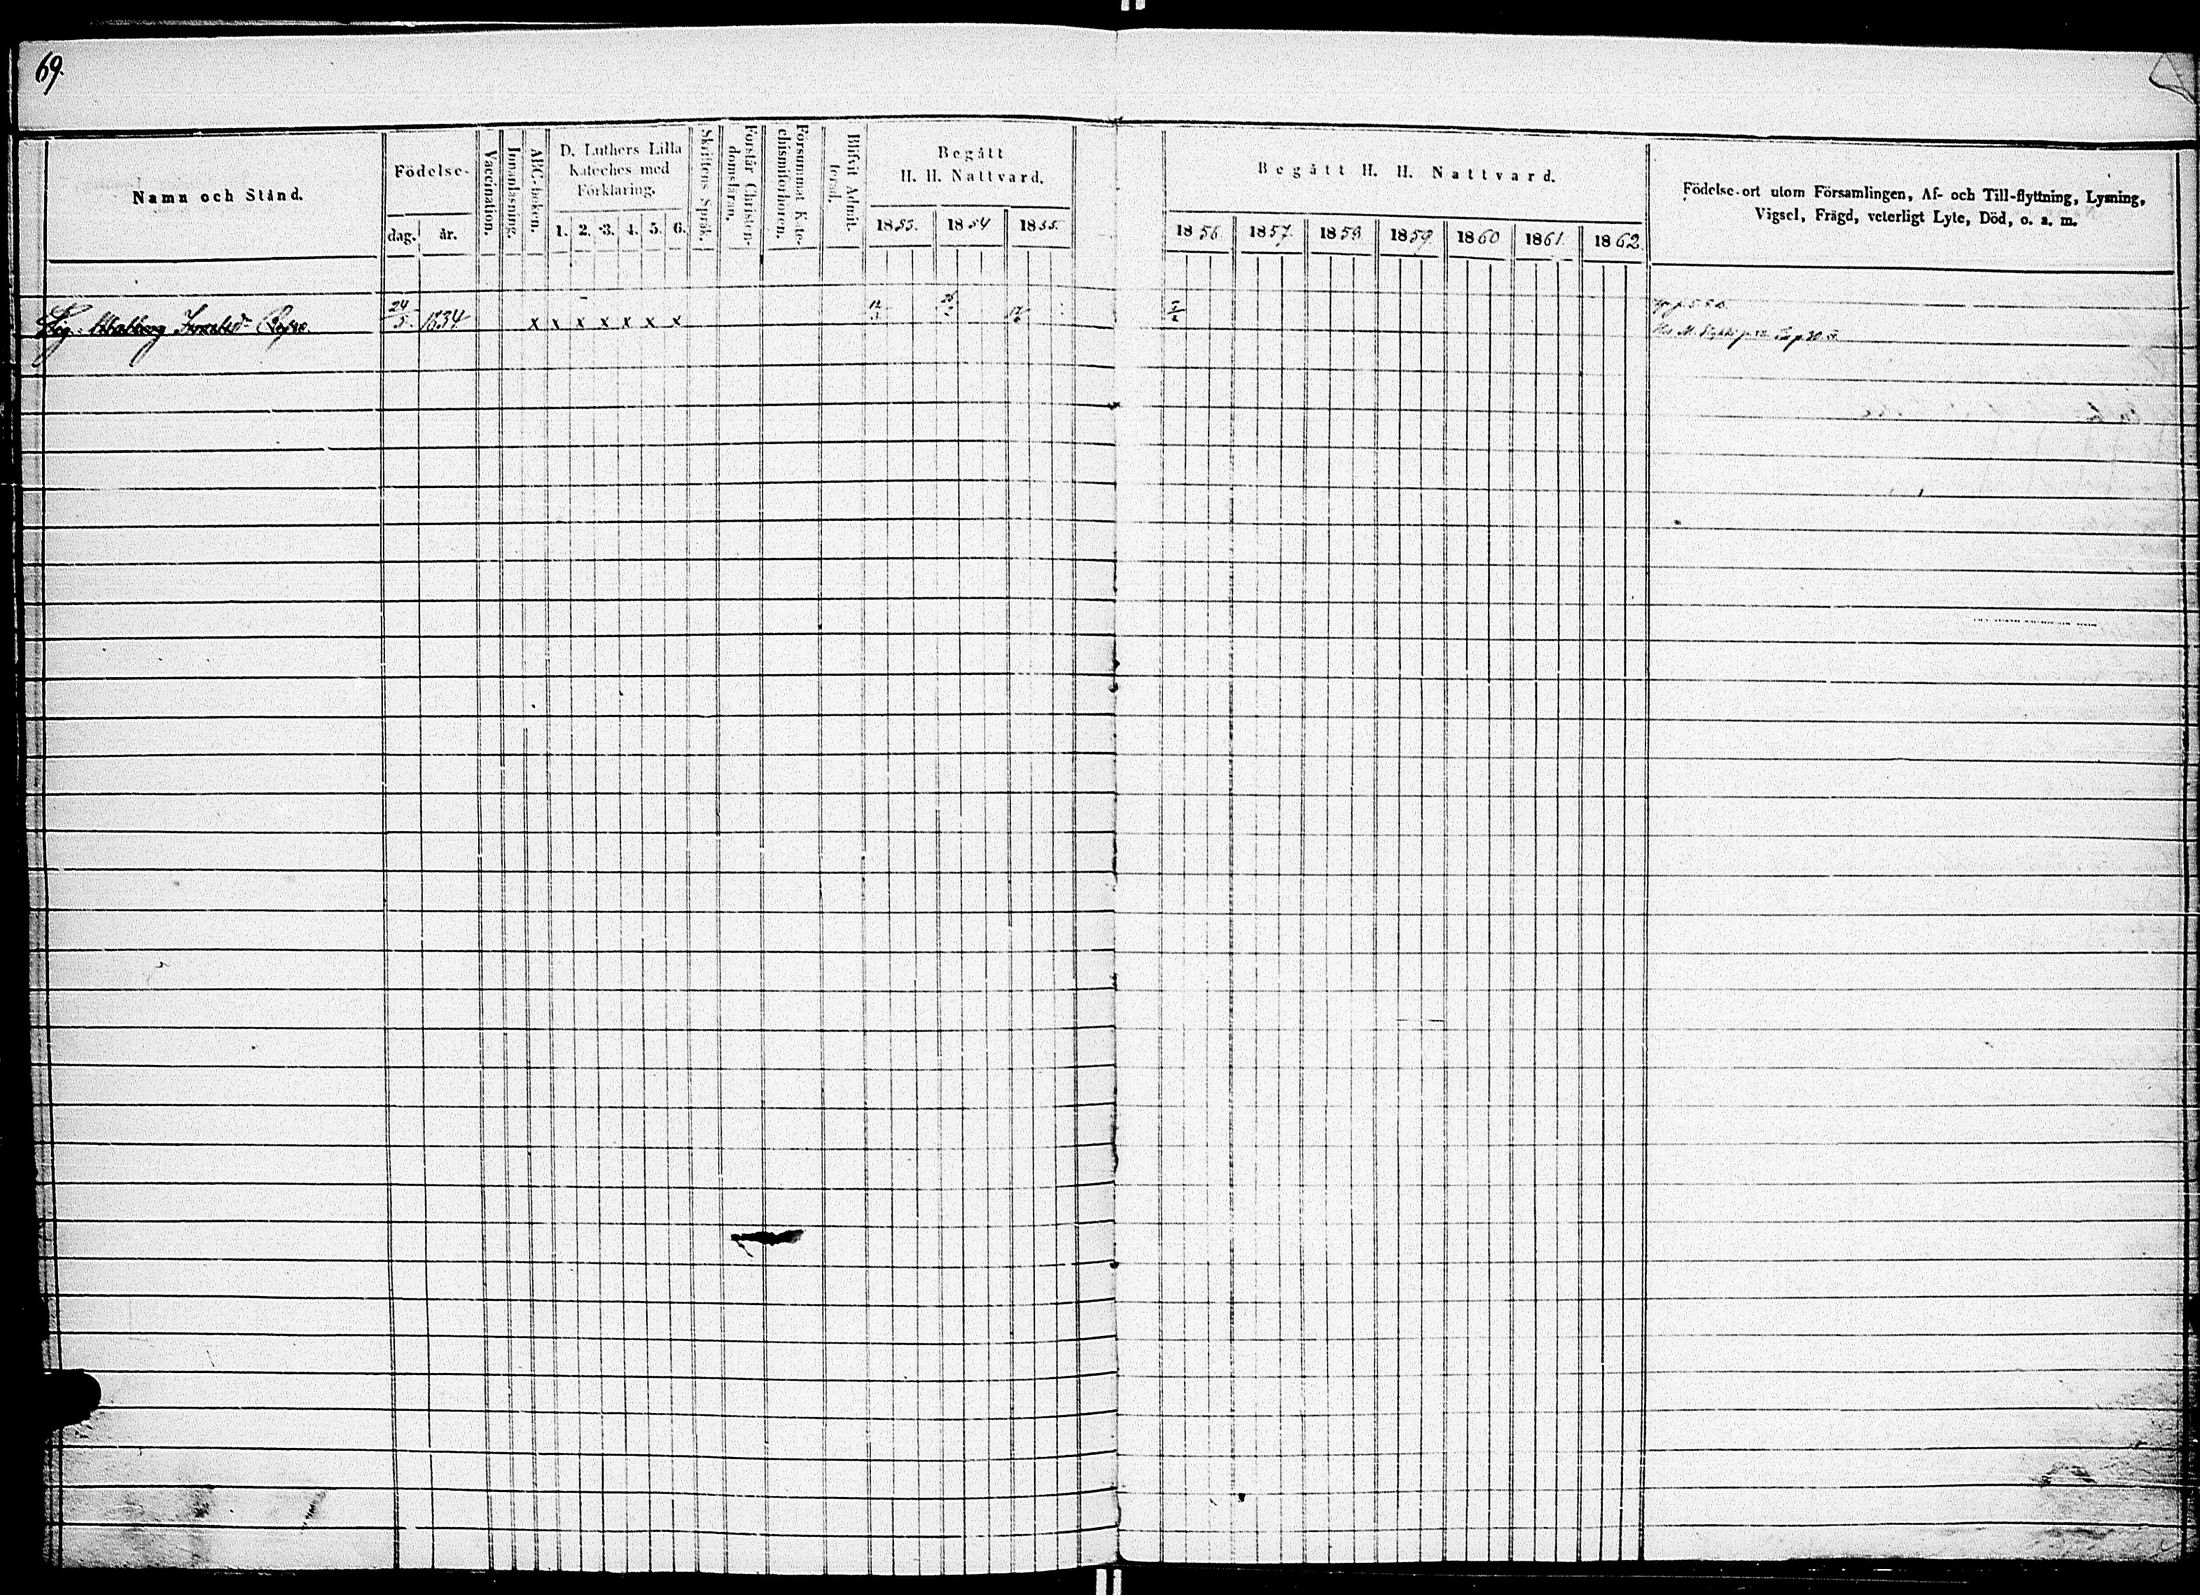 69.
Namn och Stånd.
Födelse-
dag. år.
Vaccination.
Innanläsning.
ABC-boken.
D. Luthers Lilla
Kateches med
Förklaring.
1. 2. 3. 4. 5. 6.
Skriftens Språk.
Förstår Christen-
domsläran.
Försummat Kate-
chismiförhören.
Blifvit Admit-
terad.
Begått
H. H. Nattvard.
1853. 1854 1855.
Begått H. H. Nattvard.
1856. 1857. 1858. 1859. 1860 1861. 1862.
Födelse-ort utom Församlingen, Af- och Till-flyttning, Lysning,
Vigsel, Frägd, veterligt Lyte, Död, o. a. m.
24/5. 1834 x x x x x x x